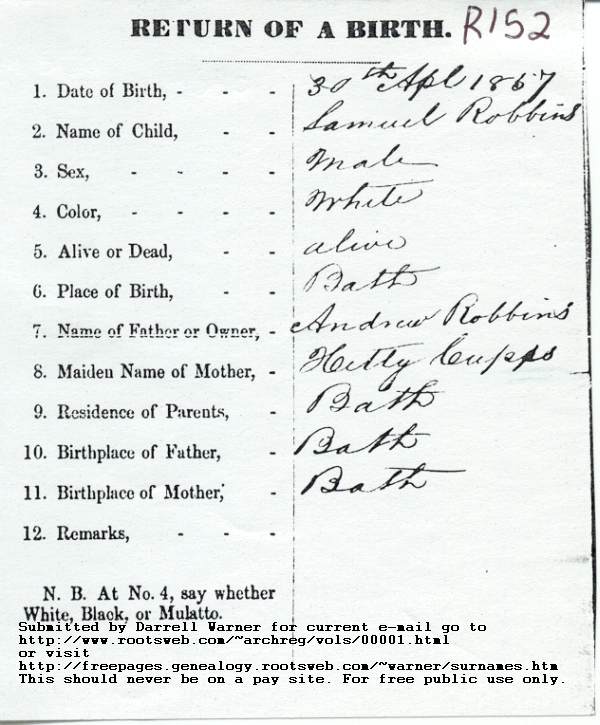 RETURN OF A BIRTH. R152
1. Date of Birth, - - - 30th Apl 1857
2. Name of Child, - - Samuel Robbins
3. Sex, - - - - Male
4. Color, - - - - White
5. Alive or Dead, - - alive
6. Place of Birth, - - Bath
7. Name of Father or Owner, - Andrew Robbins
8. Maiden Name of Mother, - Hetty Cupps
9. Residence of Parents, - Bath
10. Birthplace of Father, - Bath
11. Birthplace of Mother, - Bath
12. Remarks, - - -
N. B. At No. 4, say whether
White, Black, or Mulatto.
Submitted by Darrell Warner for current e-mail go to
http://www.rootsweb.com/~archreg/vols/00001.html
or visit
http://freepages.genealogy.rootsweb.com/~warner/surnames.htm
This should never be on a pay site. For free public use only.